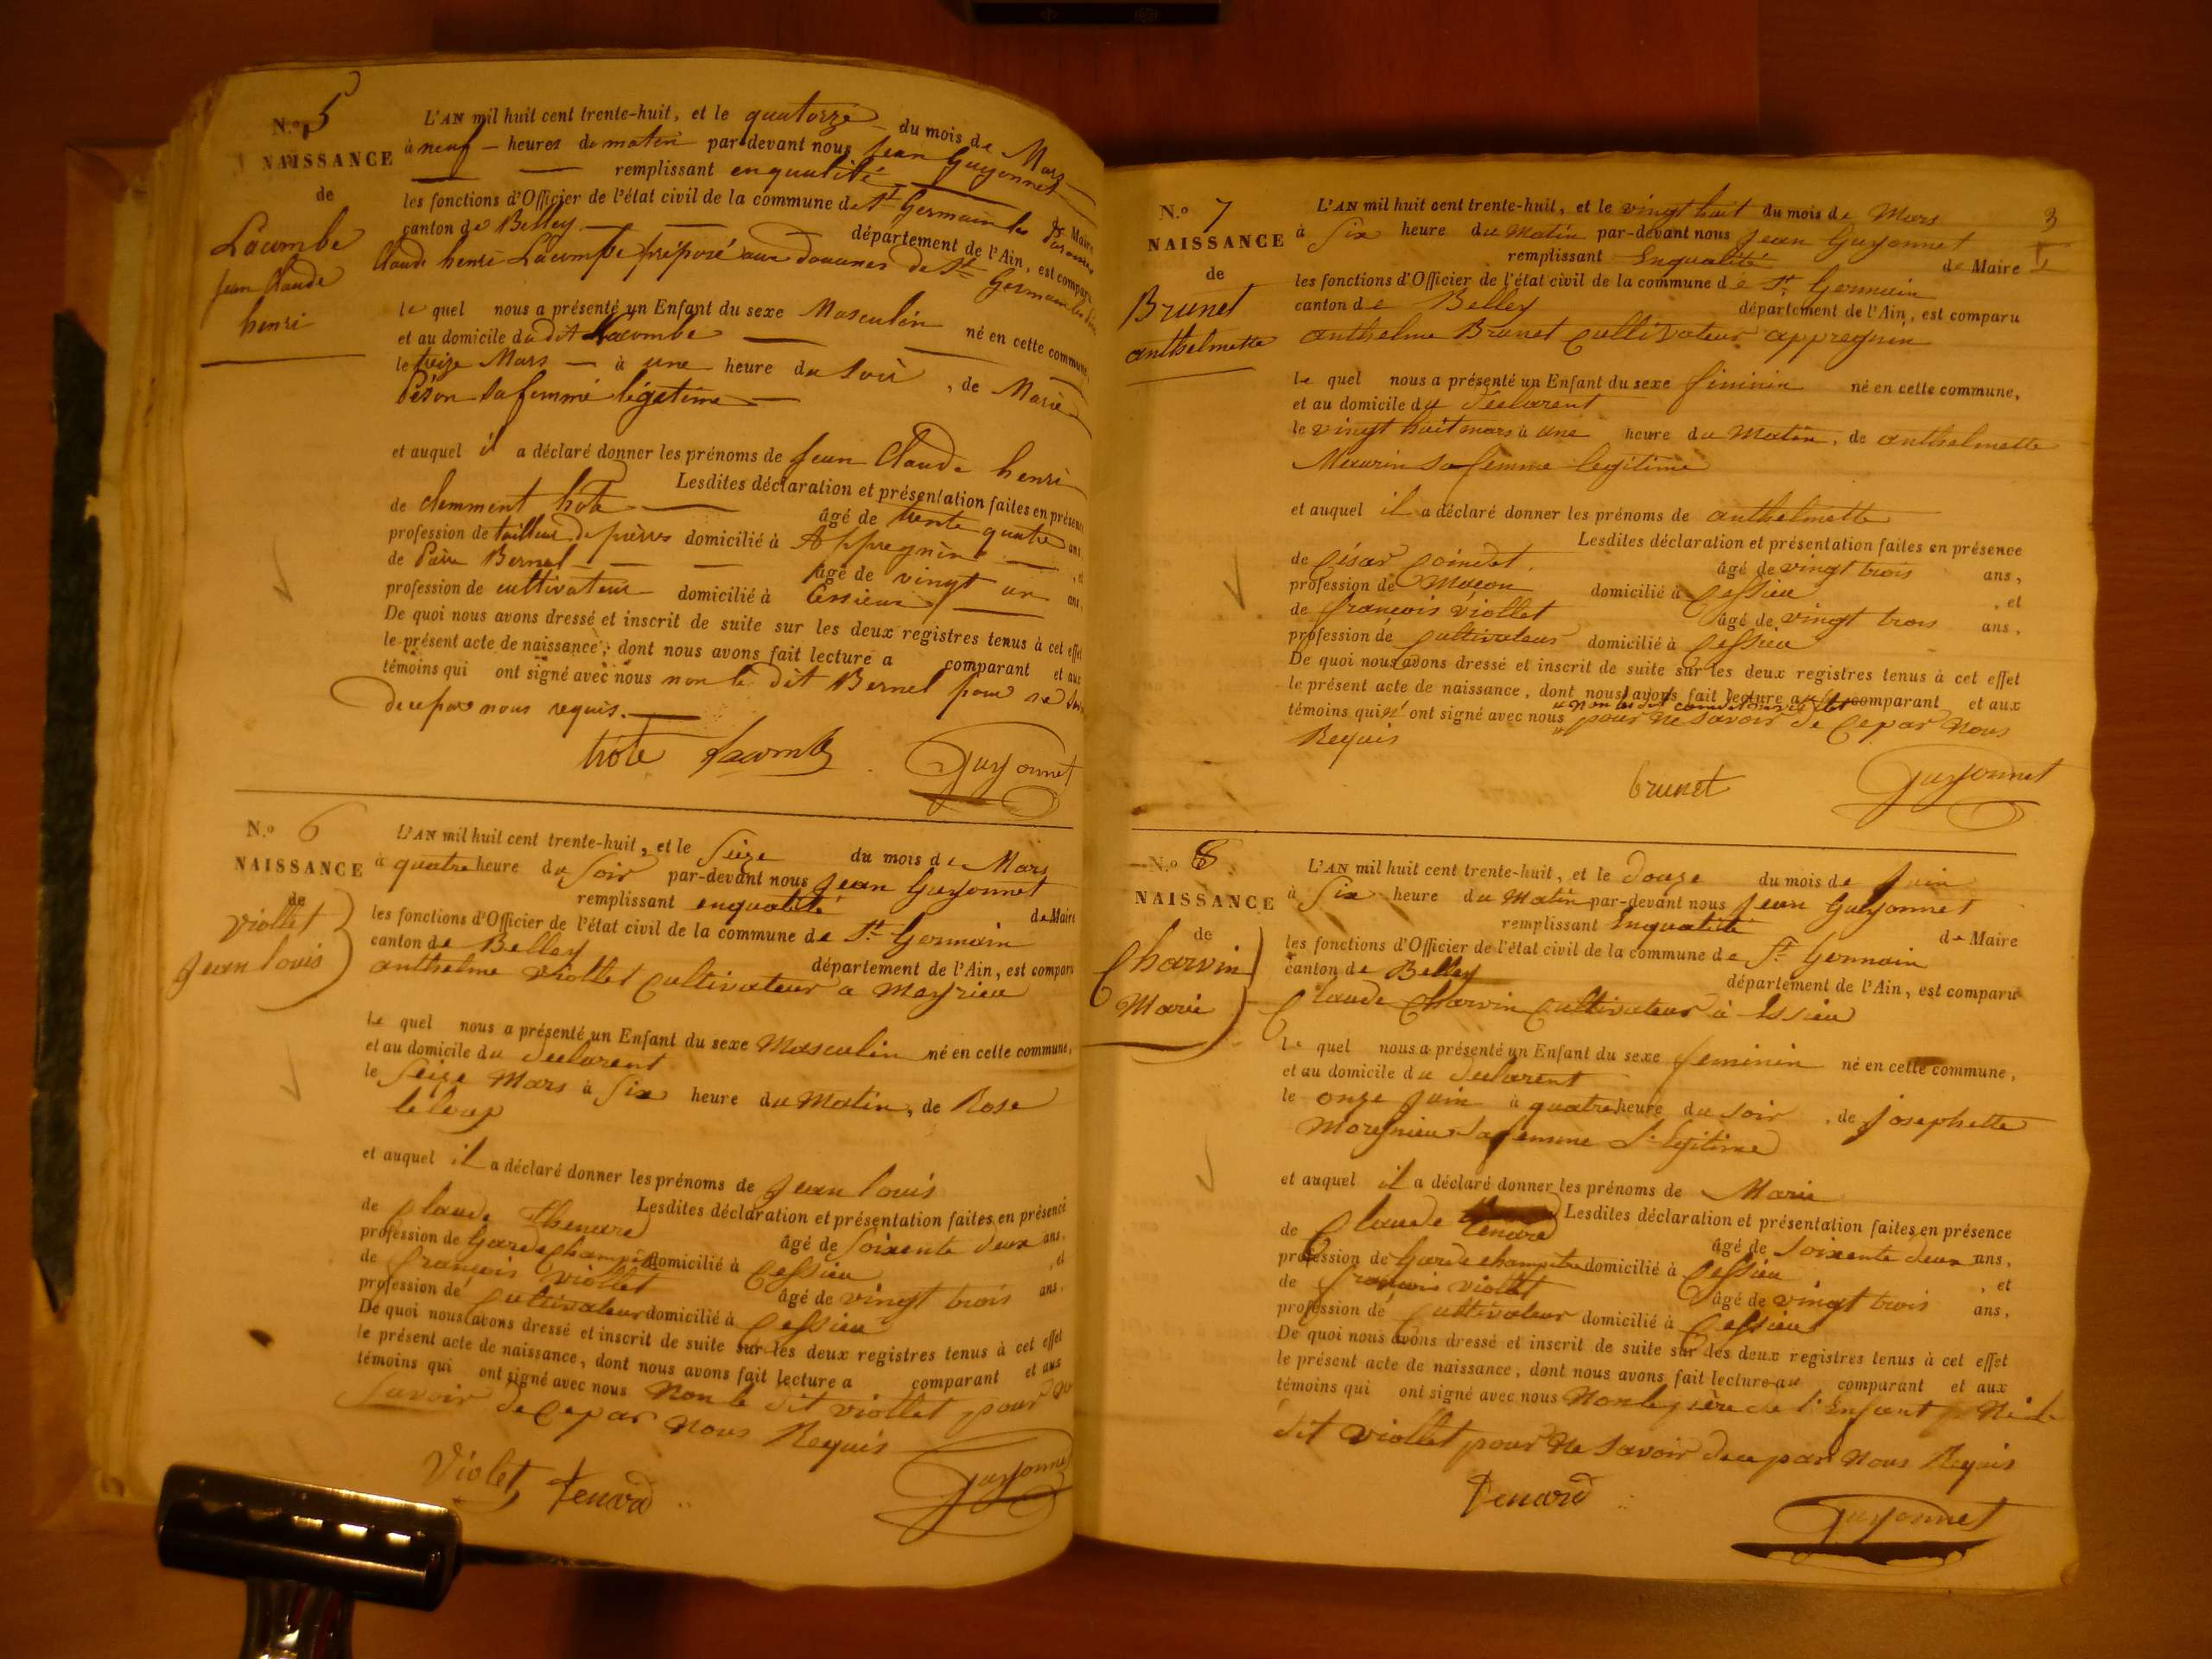 N.º 5
NAISSANCE
de
Lacombe
jean Claude
henri
L'AN mil huit cent trente-huit, et le quatorze du mois de Mars
à neuf heures du matin par-devant nous jean Guyonnet
remplissant en qualité de Maire
les fonctions d'Officier de l'état civil de la commune de St Germain les
canton de Belley département de l'Ain, est comparu
Claude henri Lacombe préposé aux douanes de St Germain les
le quel nous a présenté un Enfant du sexe Masculin né en cette commune,
et au domicile du dit Lacombe
le treize Mars à une heure du Soir, de Marie
sa femme légitime
et auquel il a déclaré donner les prénoms de jean Claude henri
Lesdites déclaration et présentation faites en présence
de clemment hôte âgé de trente quatre ans,
profession de tailleur de pierres domicilié à Appregnin, et
de Bernel âgé de vingt un ans,
profession de cultivateur domicilié à Cessieux
De quoi nous avons dressé et inscrit de suite sur les deux registres tenus à cet effet
le présent acte de naissance, dont nous avons fait lecture a comparant et aux
témoins qui ont signé avec nous non le dit Bernel pour ne
de ce par nous requis.
hôte Lacombe Guyonnet
N.º 6
NAISSANCE
de
viollet
jean louis
L'AN mil huit cent trente-huit, et le Seize du mois de Mars
à quatre heure du Soir par-devant nous jean Guyonnet
remplissant en qualité de Maire
les fonctions d'Officier de l'état civil de la commune de St Germain
canton de Belley département de l'Ain, est comparu
anthelme viollet Cultivateur a Meyrieu
le quel nous a présenté un Enfant du sexe Masculin né en cette commune,
et au domicile du declarent
le Seize Mars à Six heure du Matin, de Rose
leloup
et auquel il a déclaré donner les prénoms de jean louis
Lesdites déclaration et présentation faites en présence
de Claude Thenard âgé de Soixente deux ans,
profession de Garde Champetre domicilié à Cessieu, et
de francois viollet âgé de vingt trois ans,
profession de Cultivateur domicilié à Cessieu
De quoi nous avons dressé et inscrit de suite sur les deux registres tenus à cet effet
le présent acte de naissance, dont nous avons fait lecture a comparant et aux
témoins qui ont signé avec nous Non le dit viollet pour ne
Savoir de Ce par Nous Requis
Violet Tenard Guyonnet
3
N.º 7
NAISSANCE
de
Brunet
anthelmette
L'AN mil huit cent trente-huit, et le vingt huit du mois de Mars
à Six heure du Matin par-devant nous jean Guyonnet
remplissant Enqualité de Maire
les fonctions d'Officier de l'état civil de la commune de St Germain
canton de Belley département de l'Ain, est comparu
anthelme Brunet Cultivateur appregnin
le quel nous a présenté un Enfant du sexe feminin né en cette commune,
et au domicile du declarent
le vingt huit mars à une heure du Matin, de anthelmette
Meurin sa femme legitime
et auquel il a déclaré donner les prénoms de anthelmette
Lesdites déclaration et présentation faites en présence
de César Coindet. âgé de vingt trois ans,
profession de Macon domicilié à Cessieu, et
de francois viollet âgé de vingt trois ans,
profession de Cultivateur domicilié à Cessieu
De quoi nous avons dressé et inscrit de suite sur les deux registres tenus à cet effet
le présent acte de naissance, dont nous avons fait lecture au comparant et aux
témoins qui n' ont signé avec nous pour ne Savoir de Ce par Nous
Requis
brunet Guyonnet
N.º 8
NAISSANCE
de
Charvin
Marie
L'AN mil huit cent trente-huit, et le douze du mois de juin
à Six heure du Matin par-devant nous jean Guyonnet
remplissant Enqualité de Maire
les fonctions d'Officier de l'état civil de la commune de St Germain
canton de Belley département de l'Ain, est comparu
Claude Charvin Cultivateur à Essieu
le quel nous a présenté un Enfant du sexe feminin né en cette commune,
et au domicile du declarent
le onze juin à quatre heure du soir, de josephette
sa femme legitime
et auquel il a déclaré donner les prénoms de Marie
Lesdites déclaration et présentation faites en présence
de Claude Tenard âgé de Soixente deux ans,
profession de Garde champetre domicilié à Cessieu, et
de francois viollet âgé de vingt trois ans,
profession de Cultivateur domicilié à Cessieu
De quoi nous avons dressé et inscrit de suite sur les deux registres tenus à cet effet
le présent acte de naissance, dont nous avons fait lecture au comparant et aux
témoins qui ont signé avec nous Non le père de l'Enfant Ni le
dit viollet pour Ne Savoir de ce par Nous Requis
Tenard Guyonnet